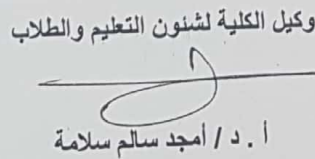 وكيل الكلية لشئون التعليم والطلاب
أ . د / أمجد سالم سلامة